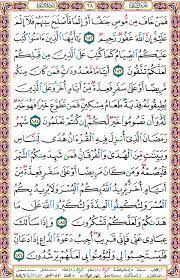 ٢٨
فَمَنْ خَافَ مِن مُّوصٍ جَنَفًا أَوْ إِثْمًا فَأَصْلَحَ بَيْنَهُمْ فَلَآ إِثْمَ
عَلَيْهِ إِنَّ ٱللَّهَ غَفُورٌ رَّحِيمٌ ١٨٢ يَٰٓأَيُّهَا ٱلَّذِينَ ءَامَنُوا۟ كُتِبَ
عَلَيْكُمُ ٱلصِّيَامُ كَمَا كُتِبَ عَلَى ٱلَّذِينَ مِن قَبْلِكُمْ
لَعَلَّكُمْ تَتَّقُونَ ١٨٣ أَيَّامًا مَّعْدُودَٰتٍ فَمَن كَانَ مِنكُم
مَّرِيضًا أَوْ عَلَىٰ سَفَرٍ فَعِدَّةٌ مِّنْ أَيَّامٍ أُخَرَ وَعَلَى ٱلَّذِينَ
يُطِيقُونَهُۥ فِدْيَةٌ طَعَامُ مِسْكِينٍ فَمَن تَطَوَّعَ خَيْرًا فَهُوَ خَيْرٌ
لَّهُۥ وَأَن تَصُومُوا۟ خَيْرٌ لَّكُمْ إِن كُنتُمْ تَعْلَمُونَ ١٨٤ شَهْرُ
رَمَضَانَ ٱلَّذِىٓ أُنزِلَ فِيهِ ٱلْقُرْءَانُ هُدًى لِّلنَّاسِ
وَبَيِّنَٰتٍ مِّنَ ٱلْهُدَىٰ وَٱلْفُرْقَانِ فَمَن شَهِدَ مِنكُمُ ٱلشَّهْرَ
فَلْيَصُمْهُ وَمَن كَانَ مَرِيضًا أَوْ عَلَىٰ سَفَرٍ فَعِدَّةٌ مِّنْ أَيَّامٍ
أُخَرَ يُرِيدُ ٱللَّهُ بِكُمُ ٱلْيُسْرَ وَلَا يُرِيدُ بِكُمُ
ٱلْعُسْرَ وَلِتُكْمِلُوا۟ ٱلْعِدَّةَ وَلِتُكَبِّرُوا۟ ٱللَّهَ عَلَىٰ مَا
هَدَىٰكُمْ وَلَعَلَّكُمْ تَشْكُرُونَ ١٨٥ وَإِذَا سَأَلَكَ
عِبَادِى عَنِّى فَإِنِّى قَرِيبٌ أُجِيبُ دَعْوَةَ ٱلدَّاعِ إِذَا دَعَانِ
فَلْيَسْتَجِيبُوا۟ لِى وَلْيُؤْمِنُوا۟ بِى لَعَلَّهُمْ يَرْشُدُونَ ١٨٦